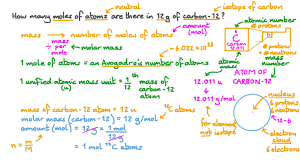 neutral
isotope of carbon
How many moles of atoms are there in 12 g of carbon-12?
amount (mol)
atomic number
mass → number of moles of atoms
mass per mole
molar mass
6.022 × 10²³
6 protons
6 protons + neutrons
mass number
1 mole of atoms = Avogadro's number of atoms
atomic mass
12.011 u
1 unified atomic mass unit = 1/12 th mass of carbon-12 atom
(u)
12.011 g/mol
ATOM OF CARBON-12
nucleus
6 protons
6 neutrons
12-6
mass of carbon-12 atom = 12 u
¹²C atoms
molar mass (carbon-12) = 12 g/mol
amount (mol) = 12 g × 1 mol / 12 g
for element not isotope
= 1 mol ¹²C atoms
n = m/M
electron cloud
6 electrons